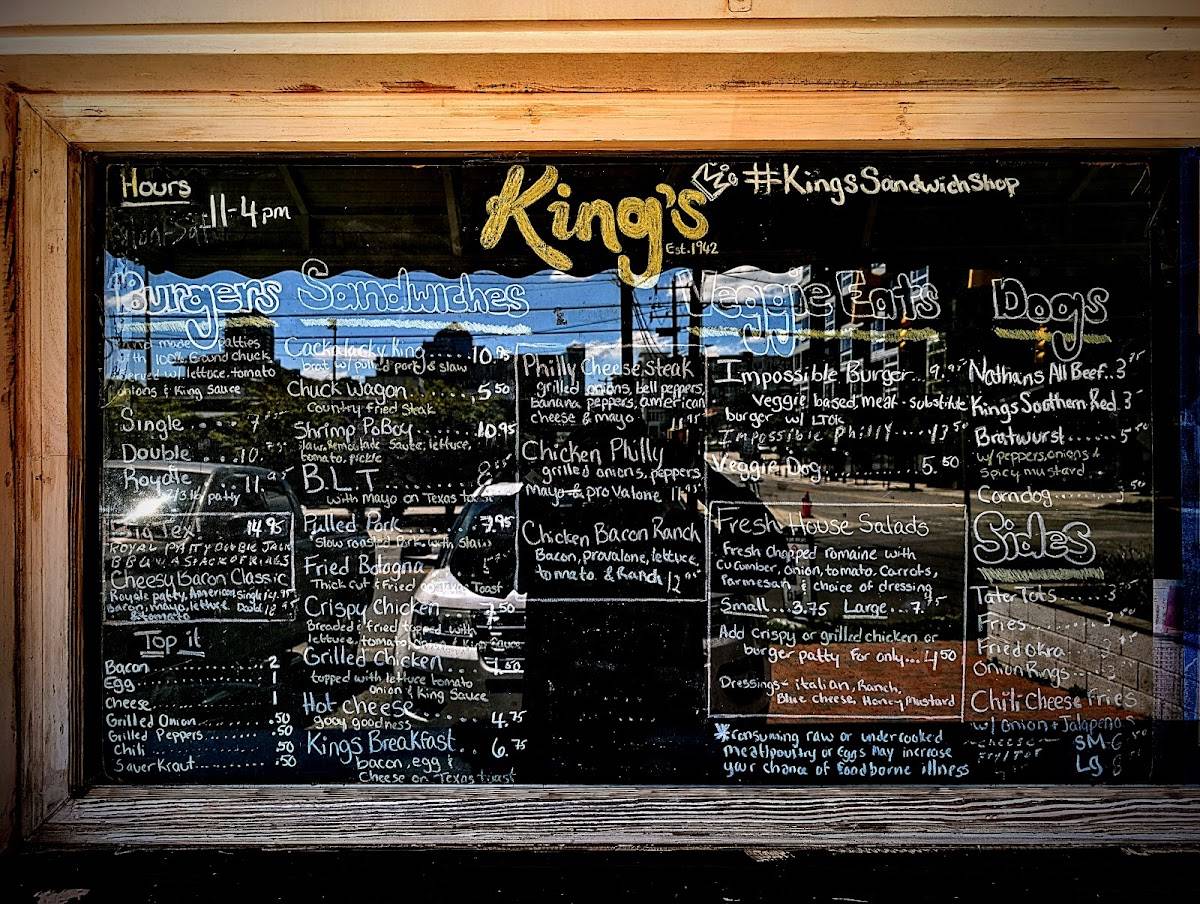 Hours
11-4pm
King's
Est.1942
#KingsSandwichShop
Burgers
patties
with 100% Ground chuck
served w/ lettuce, tomato
onions & King Sauce
Single
Double ... 10.
Royale ... 11.
2/3 lb patty
Big Tex! 14.95
Cheesy Bacon Classic
Royale patty, American
Bacon, mayo, lettuce
& tomato
Top it
Bacon 2
Egg 1
Cheese 1
Grilled Onion .50
Grilled Peppers .50
Chili .50
SauerKraut .50
Sandwiches
Cackalacky King .... 10.95
brat w/ pulled pork & slaw
Chuck Wagon ..... 5.50
Country fried steak
Shrimp PoBoy ..... 10.95
slaw, remoulade sauce, lettuce,
tomato, pickle
B.L.T
with Mayo on Texas toast
Pulled Pork ..... 7.95
Slow roasted Pork with Slaw
Fried Bologna
Thick cut & Fried on Texas Toast
Crispy Chicken 7.50
Breaded & fried topped with
lettuce, tomato, onion & King Sauce
Grilled Chicken .. 7.50
topped with lettuce tomato
onion & King Sauce
Hot cheese
gooy goodness ...... 4.75
Kings Breakfast.. 6.75
bacon, egg &
Cheese on Texas toast
Philly Cheese Steak
grilled onions, bell peppers,
banana peppers, american
cheese & mayo. 11.95
Chicken Philly
grilled onions, peppers,
mayo & provalone 11
Chicken Bacon Ranch
Bacon, provalone, lettuce,
tomato & Ranch 12
Veggie Eats
Impossible Burger.. 9.95
veggie based, meat-substitute
burger w/ LTOK
Impossible Philly ..... 13.50
Veggie Dog ........ 5.50
Fresh House Salads
Fresh chopped romaine with
Cucumber, onion, tomato. Carrots,
Parmesan & choice of dressing
Small...3.75 Large...7.75
Add crispy or grilled chicken or
burger patty For only... 4.50
Dressings- italian, Ranch,
Blue cheese, Honey mustard
*consuming raw or undercooked
meat/poultry or Eggs May increase
your chance of foodborne illness
Dogs
Nathans All Beef..3.75
Kings Southern Red. 3
Bratwurst....... 5.50
w/ peppers, onions &
spicy mustard
Corndog ....... 3.50
Sides
Tater Tots ..... 3.50
Fries ........ 3
Fried Okra
Onion Rings
Chili Cheese Fries
w/ Onion + Jalapeños
SM-6
Lg 8